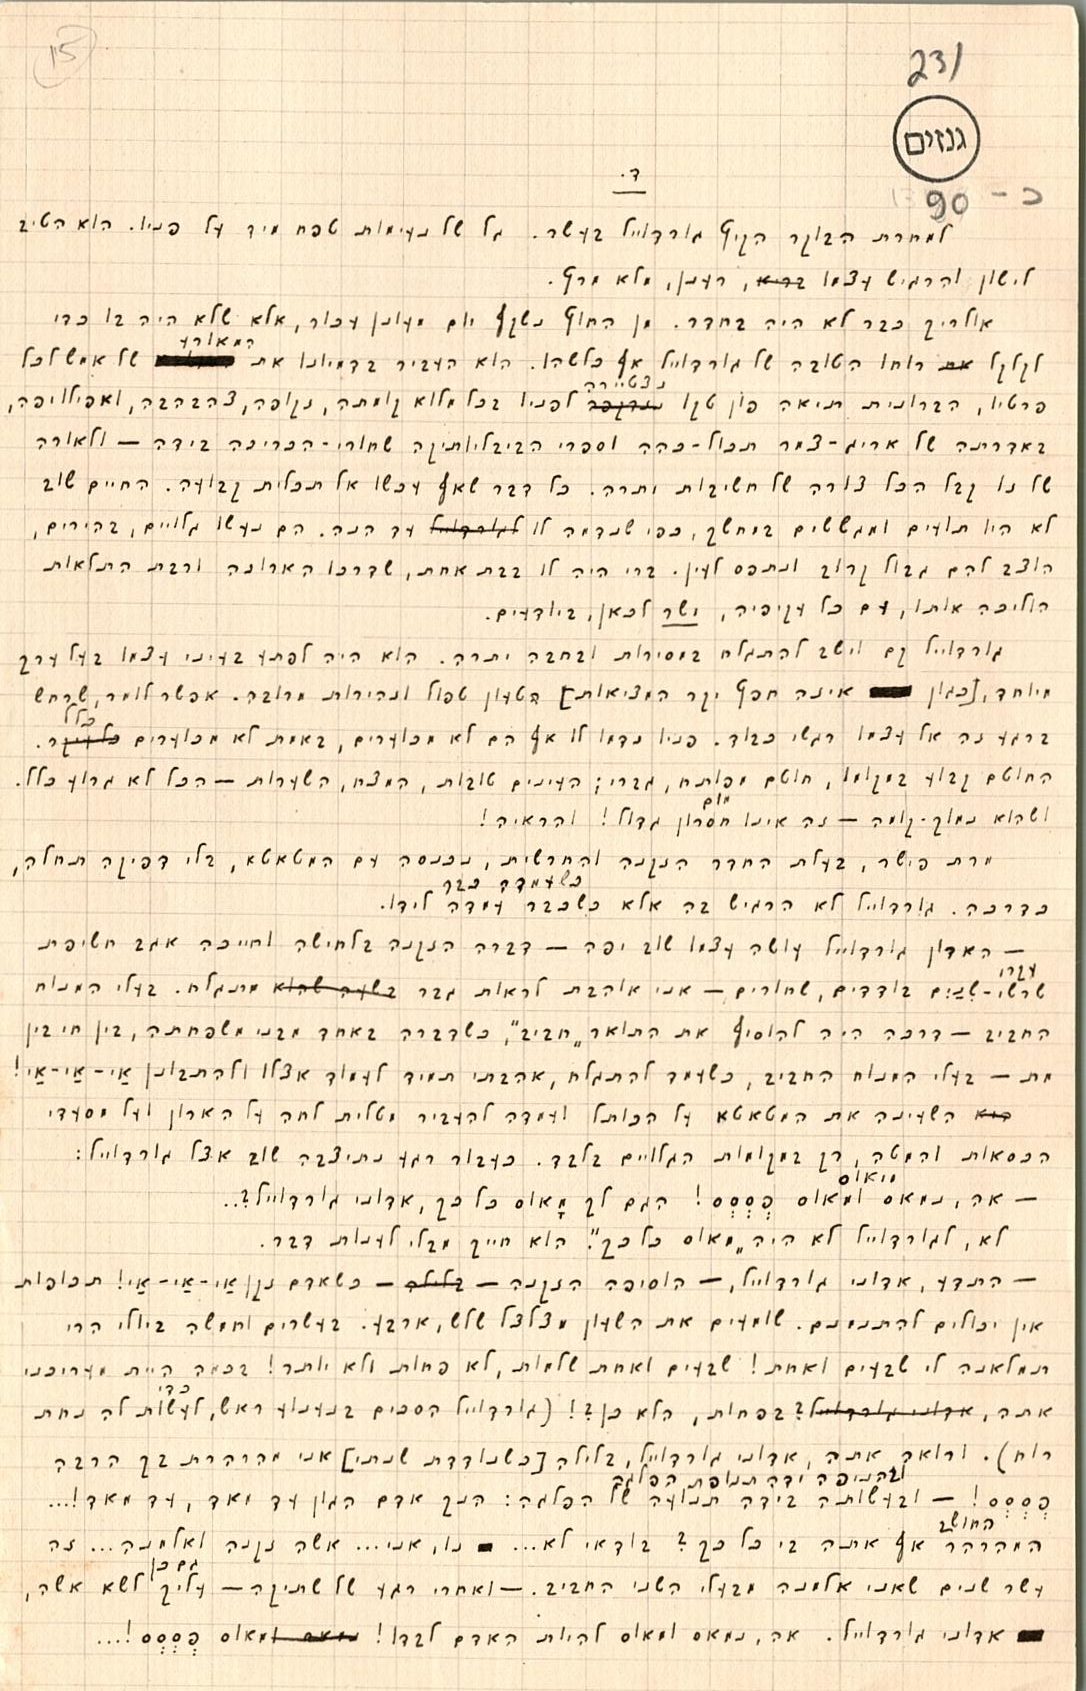 15
231
גנזים
כ - 90
ד.
למחרת הבוקר הקיץ גורדווייל בעשר. גל של נעימות טפח מיד על פניו. הוא הטיב
לישון והרגיש עצמו בריא, רענן, מלא מרץ.
אולריך כבר לא היה בחדר. מן החוץ נשקף יום מעונן עכור, אלא שלא היה בו כדי
המאורע
לקלקל את רוחו הטובה של גורדווייל אף כלשהו. הוא העביר בדמיונו את של אמש לכל
נצטיירה
פרטיו, הברונית תיאה פון טקו לפניו בכל מלוא קומתה, זקופה, צהבהבה, ואפילו יפה,
באדרתה של אריג-צמר תכול-כהה וספרי הביבליותיקה שחורי-הכריכה בידה — ולאורה
של זו קבל הכל צורה של חשיבות יתרה. כל דבר שאף עכשו אל תכלית קבועה. החיים שוב
לא היו תועים ומגששים במחשך, כפי שנדמה לו לגורדווייל עד הנה. הם נעשו גלויים, בהירים,
הוצב להם גבול קרוב ונתפס לעין. ברי היה לו בבת אחת, שדרכו הארוכה ורבת התלאות
הוליכה אותו, עם כל עקיפיה, ישר לכאן, ביודעים.
גורדווייל קם וישב להתגלח במסירות ובחבה יתרה. הוא היה לפתע בעיני עצמו בעל ערך
מיוחד, [כגון אינה חפץ יקר המציאות] הטעון טפול וזהירות מרובה. אפשר לומר, שרחש
כלל
ברגע זה אל עצמו רגשי כבוד. פניו נדמו לו אף הם לא מכוערים, באמת לא מכוערים כל עיקר.
החוטם קבוע במקומו, חוטם מפותח, גברי; העינים טובות, המצח, השערות — הכל לא גרוע כלל.
מום
ושהוא נמוך-קומה — זה אינו חסרון גדול! והראיה!
מרת פישר, בעלת החדר הזקנה והחרשית, נכנסה עם המטאטא, בלי דפיקה תחלה,
כשעמדה כבר
כדרכה. גורדווייל לא הרגיש בה אלא כשכבר עמדה לידו.
— האדון גורדווייל עושה עצמו שוב יפה — דברה הזקנה בלחישה וחייכה אגב חשיפת
עקרי
שרשי-שִנַיִם בודדים, שחורים — אני אוהבת לראות גבר בשעה שהוא מתגלח. בעלי המנוח
החביב — דרכה היה להוסיף את התואר „חביב”, כשדברה באחד מבני משפחתה, בין חי בין
מת — בעלי המנוח החביב, כשעמד להתגלח, אהבתי תמיד לעמוד אצלו ולהתבונן אַי-אַי-אַי!
היא השעינה את המטאטא על הכותל ועמדה להעביר מטלית לחה על הארון ועל מסעדי
הכסאות והמטה, רק במקומות הגלויים בלבד. כעבור רגע נתיצבה שוב אצל גורדווייל:
מיאוס
— אה, נמאס ומאוס פְסְסְס! הגם לך מָאוס כל כך, אדוני גורדווייל?..
לא, לגורדווייל לא היה „מאוס כל כך”. הוא חייך מבלי לענות דבר.
— התדע, אדוני גורדווייל, — הוסיפה הזקנה — בלילה — כשאדם זקן אַי-אַי-אַי! תכופות
אין יכולים להתנמנם. שומעים את השעון מצלצל שלש, ארבע. בעשרים וחמשה ביולי הרי
תמלאנה לי שבעים ואחת! שבעים ואחת שלמות, לא פחות ולא יותר! בכמה היית מעריכני
כדי
אתה, אדוני גורדווייל? בפחות, הלא כן?! (גורדווייל הסכים בנענוע ראש, לעשות לה נחת
רוח). ורואה אתה, אדוני גורדווייל, בלילה [כשנודדת שנתי] אני מהרהרת בך הרבה
ובהניפה ידה תנופת הפלגה
פְסְסְס! — ובעשותה בידה תנועה של הפלגה: הנך אדם הגון עד מאד, עד מאד!...
החושב
המהרהר אף אתה בי כל כך? בודאי לא... נו, אני... אשה זקנה ואלמנה... זה
גם כן
עשר שנים שאני אלמנה מבעלי השני החביב. — ואחרי רגע של שתיקה — עליך לשא אשה,
אדוני גורדווייל. אה, נמאס ומאוס להיות האדם לבדו! נמאס ומאוס פְסְסְס!...